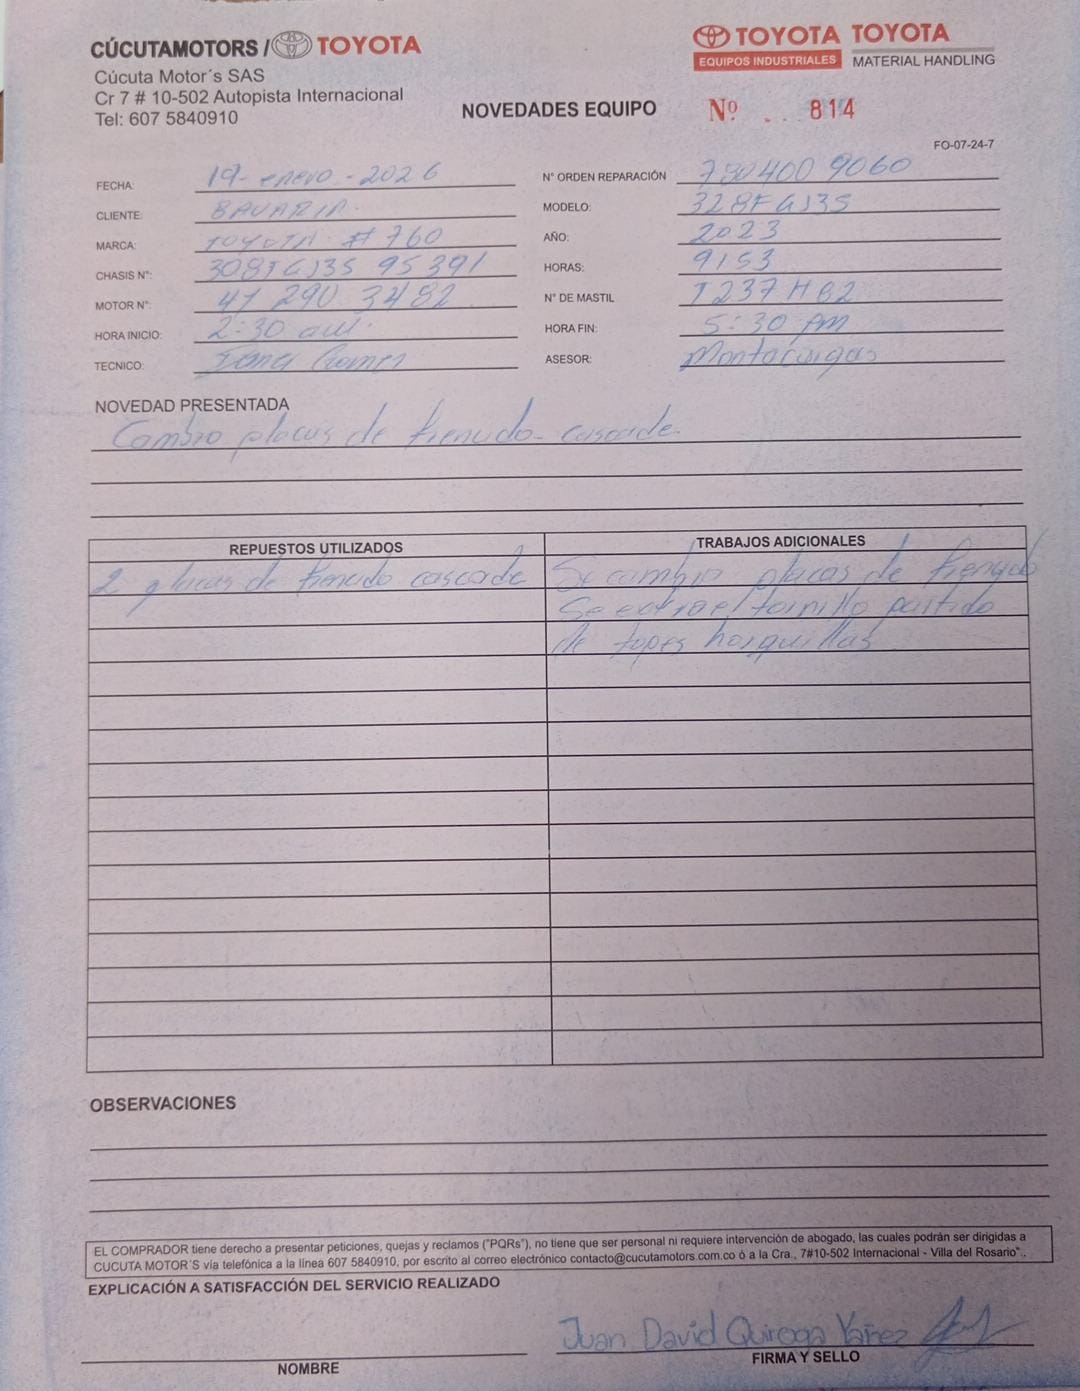 CÚCUTAMOTORS / TOYOTA
Cúcuta Motor´s SAS
Cr 7 # 10-502 Autopista Internacional
Tel: 607 5840910
TOYOTA EQUIPOS INDUSTRIALES
TOYOTA MATERIAL HANDLING
NOVEDADES EQUIPO
Nº 814
FO-07-24-7
FECHA: 19- enero - 2026
N° ORDEN REPARACIÓN
CLIENTE: BAVARIA.
MODELO:
MARCA: TOYOTA # 760
AÑO: 2023
CHASIS N°:
HORAS: 9153
MOTOR N°: 41 290 3482
N° DE MASTIL
HORA INICIO: 2:30
HORA FIN: 5:30 PM
TECNICO:
ASESOR: Montacargas
NOVEDAD PRESENTADA
Cambio placas de frenado cascade.
REPUESTOS UTILIZADOS
TRABAJOS ADICIONALES
2 placas de frenado cascade
Se cambio placas de frenado
Se extrae el tornillo partido
de topes horquillas
OBSERVACIONES
EL COMPRADOR tiene derecho a presentar peticiones, quejas y reclamos ("PQRs"), no tiene que ser personal ni requiere intervención de abogado, las cuales podrán ser dirigidas a
CUCUTA MOTOR´S vía telefónica a la línea 607 5840910, por escrito al correo electrónico contacto@cucutamotors.com.co ó a la Cra., 7#10-502 Internacional - Villa del Rosario"..
EXPLICACIÓN A SATISFACCIÓN DEL SERVICIO REALIZADO
Juan David Quiroga Yañez
NOMBRE
FIRMA Y SELLO